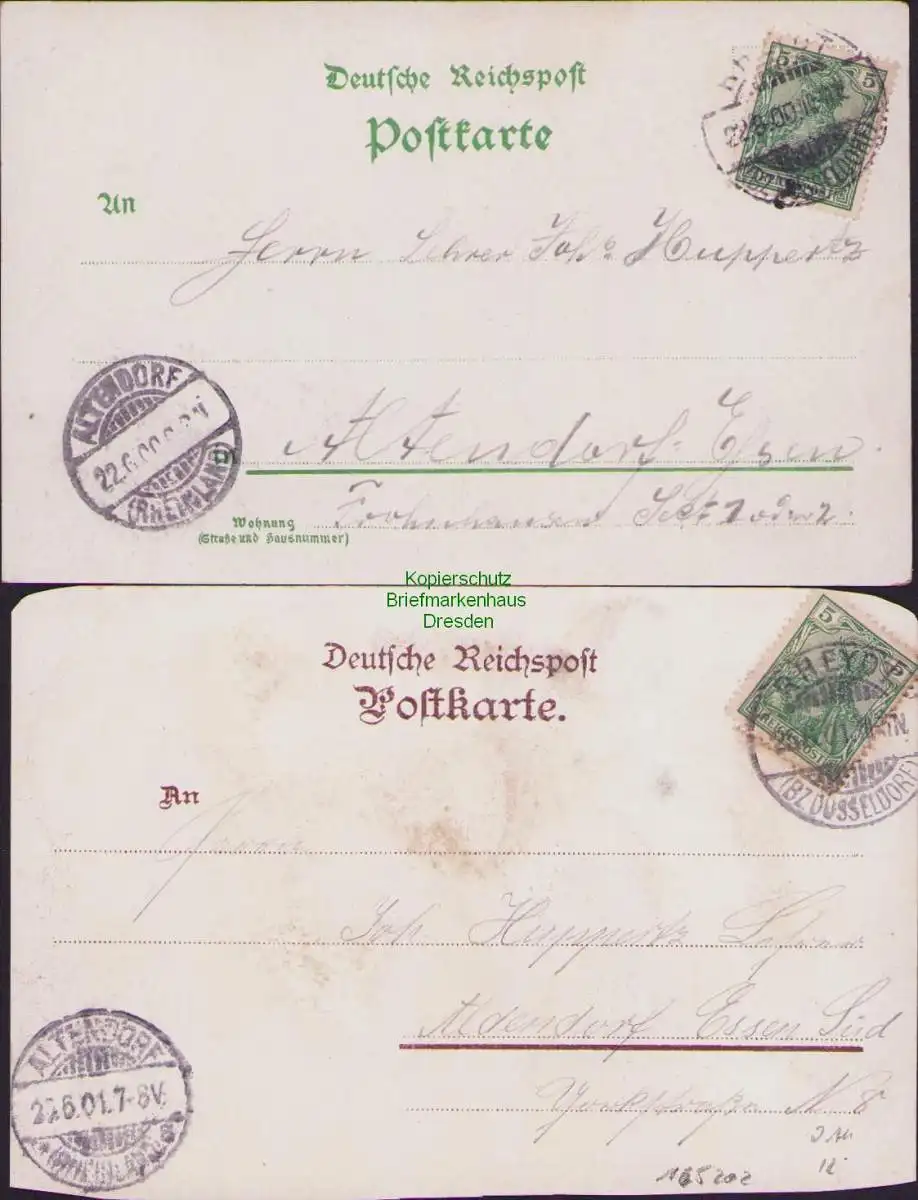 Deutsche Reichspost
Postkarte
5 5
REICHSPOST
An
Herrn Lehrer Joh. Huppertz
ALTENDORF
22.6.00
(RHEINLAND)
Altendorf Essen
Wohnung
(Straße und Hausnummer)
Frohnhausen
Kopierschutz
Briefmarkenhaus
Dresden
Deutsche Reichspost
Postkarte.
5
REICHSPOST
RHEYDT
(BZ DÜSSELDORF)
An
Herrn
Joh Huppertz Lehrer
Altendorf Essen Süd
Yorkstraße N 8
ALTENDORF
22.6.01.7-8V.
(RHEINLAND)
165202